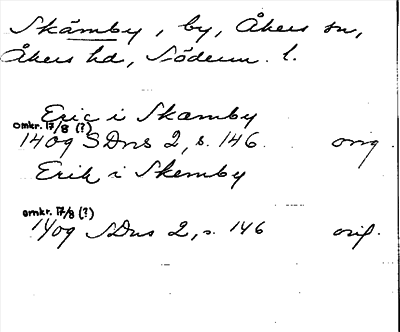 Skämby, by, Åkers sn,
Åkers hd, Söderm. l.
Eric i Skæmby
omkr. 17/8 (?)
1409 SDns 2, s. 146. orig.
Erik i Skemby
omkr. 17/8 (?)
1409 SDns 2, s. 146 orig.